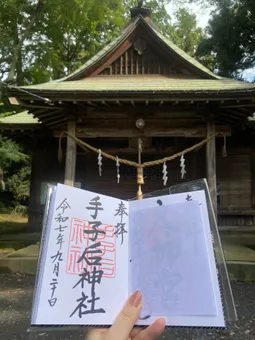 奉拝
手子后神社
令和七年九月二十日